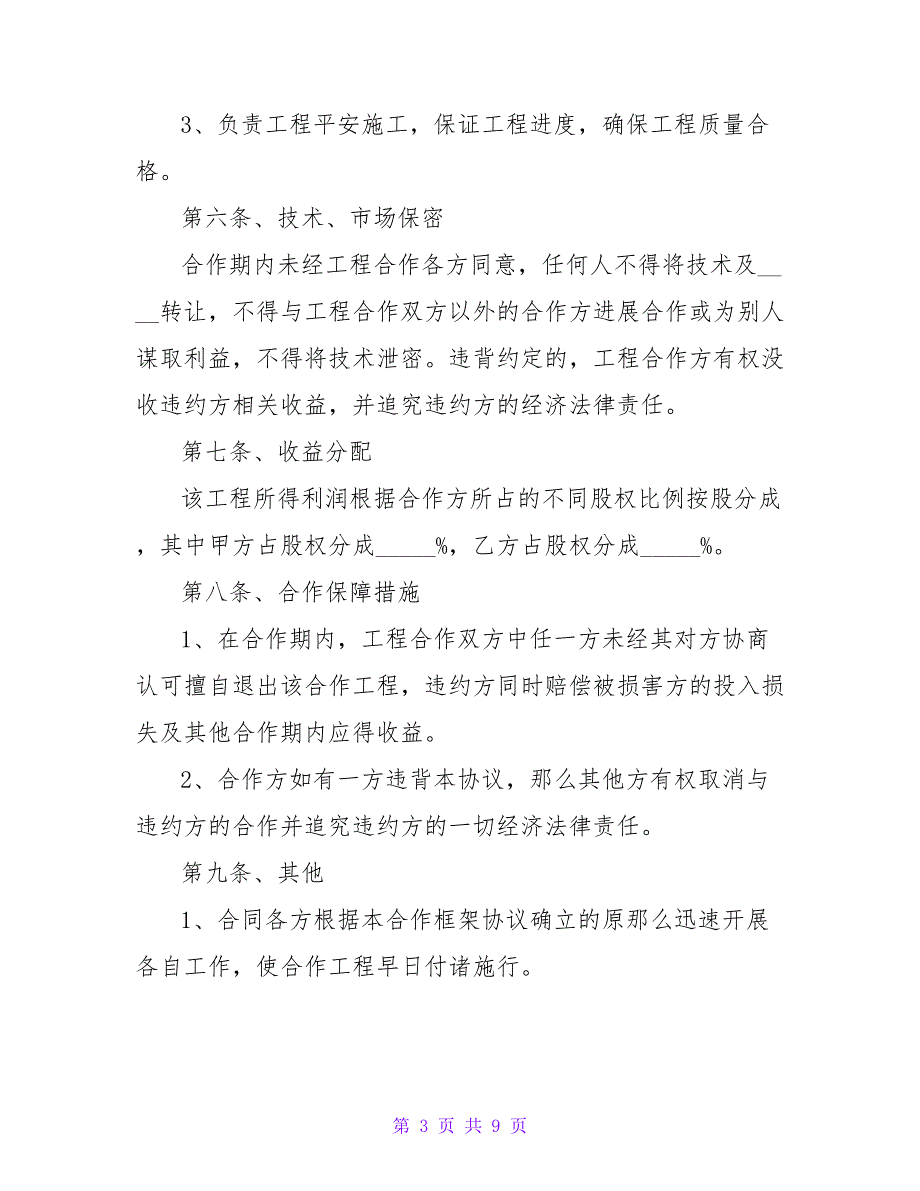 3、负责工程平安施工，保证工程进度，确保工程质量合
格。
第六条、技术、市场保密
合作期内未经工程合作各方同意，任何人不得将技术及__
__转让，不得与工程合作双方以外的合作方进展合作或为别人
谋取利益，不得将技术泄密。违背约定的，工程合作方有权没
收违约方相关收益，并追究违约方的经济法律责任。
第七条、收益分配
该工程所得利润根据合作方所占的不同股权比例按股分成
，其中甲方占股权分成_____%，乙方占股权分成_____%。
第八条、合作保障措施
1、在合作期内，工程合作双方中任一方未经其对方协商
认可擅自退出该合作工程，违约方同时赔偿被损害方的投入损
失及其他合作期内应得收益。
2、合作方如有一方违背本协议，那么其他方有权取消与
违约方的合作并追究违约方的一切经济法律责任。
第九条、其他
1、合同各方根据本合作框架协议确立的原那么迅速开展
各自工作，使合作工程早日付诸施行。
第 3 页 共 9 页